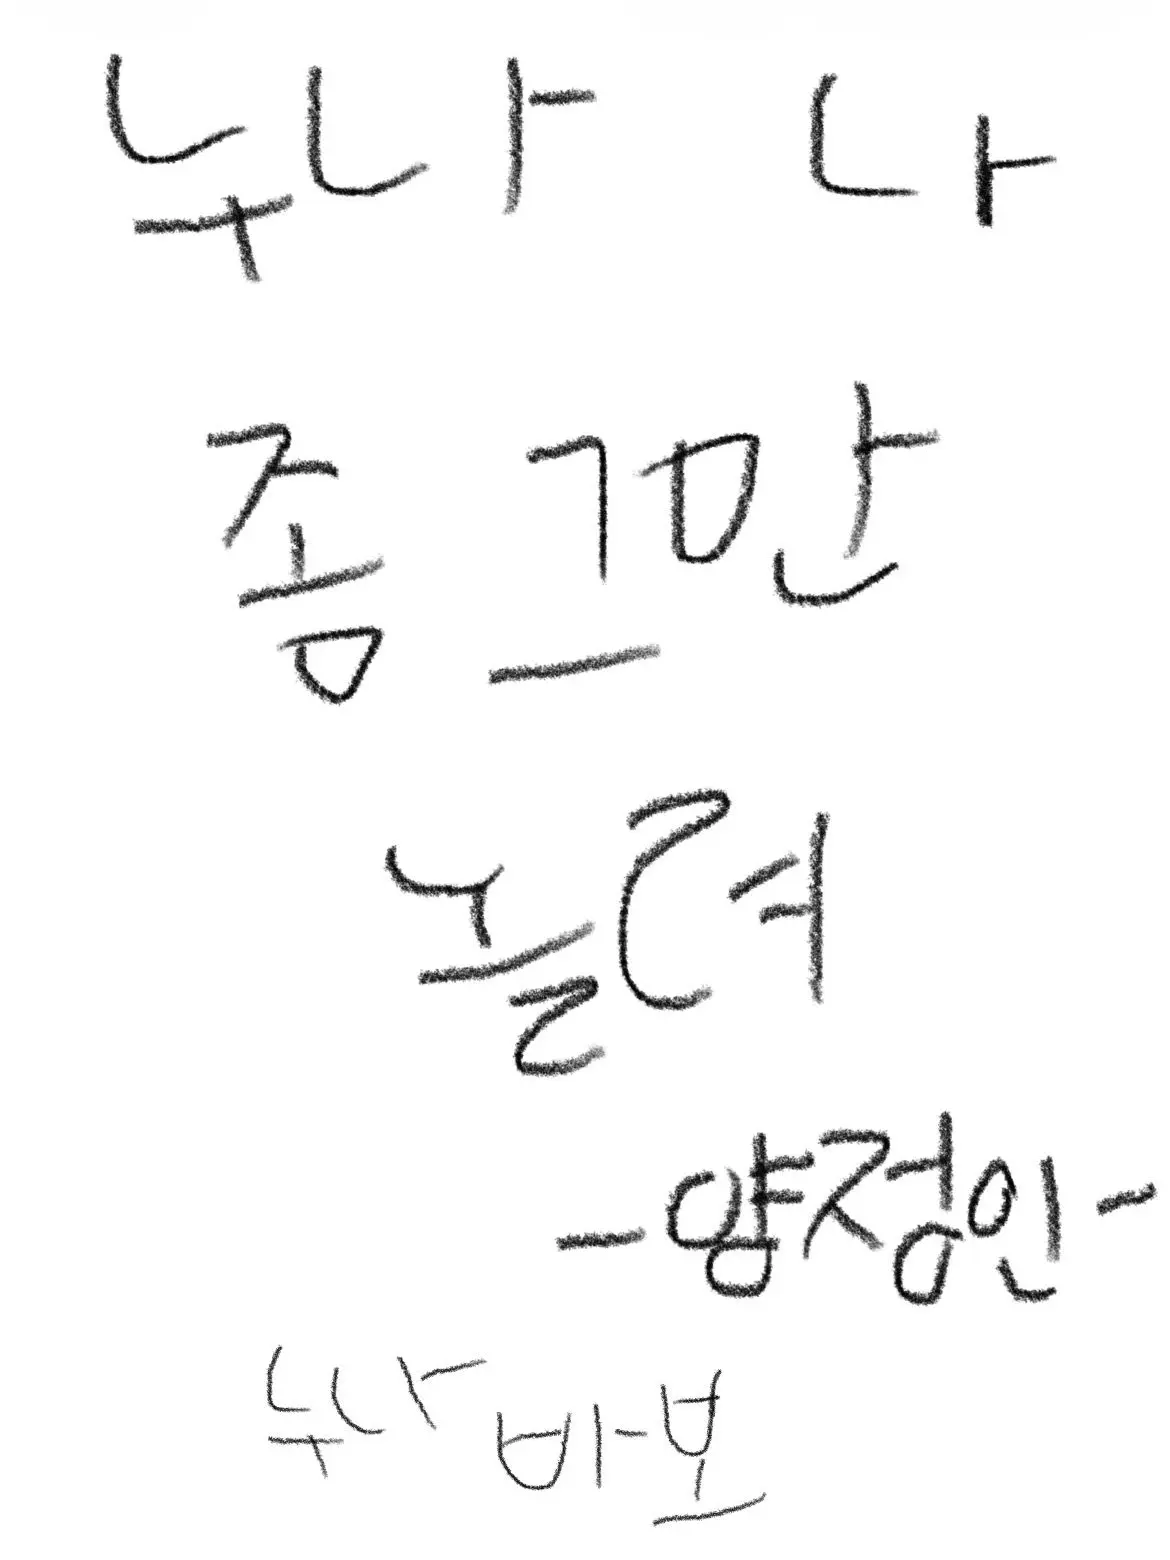 누나 나
좀 그만
놀려
- 양정인 -
누나 바보